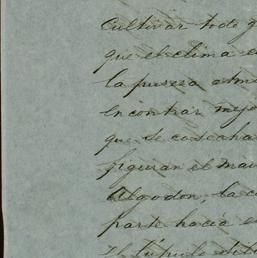 Cultivar todo q
que el clima e
la pureza atmo
encontrar mejo
que se cosecha
figuran el mai
Algodon, la c
parte hacia e